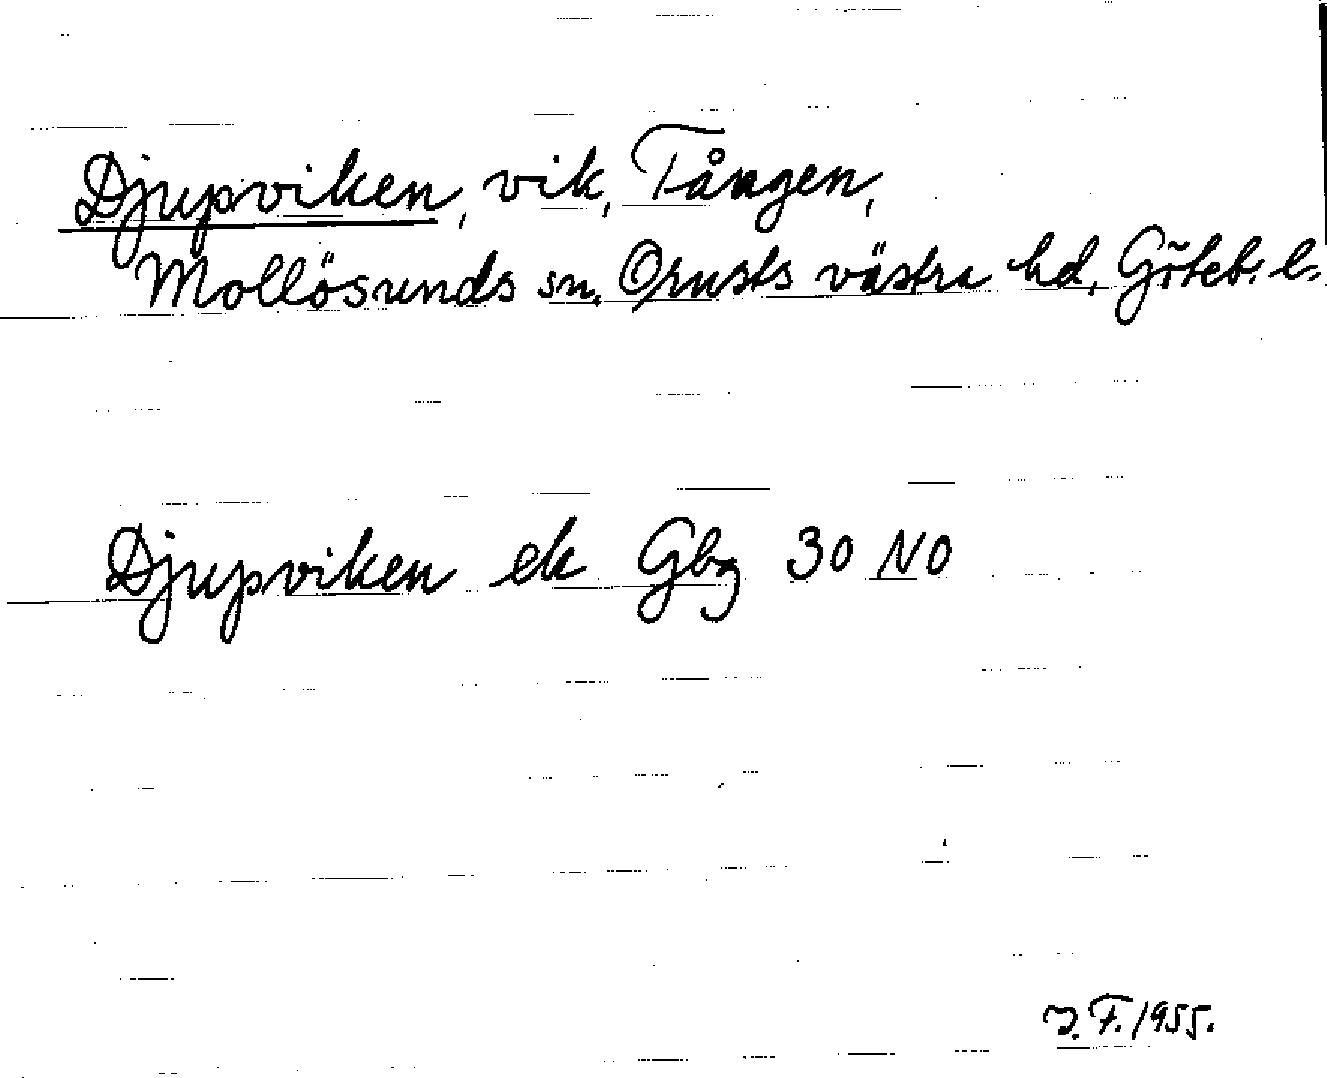 Djupviken, vik, Tången,
Mollösunds sn. Orusts västra hd, Göteb. l.
Djupviken ek Gbg 30 NO
J. F. 1955.